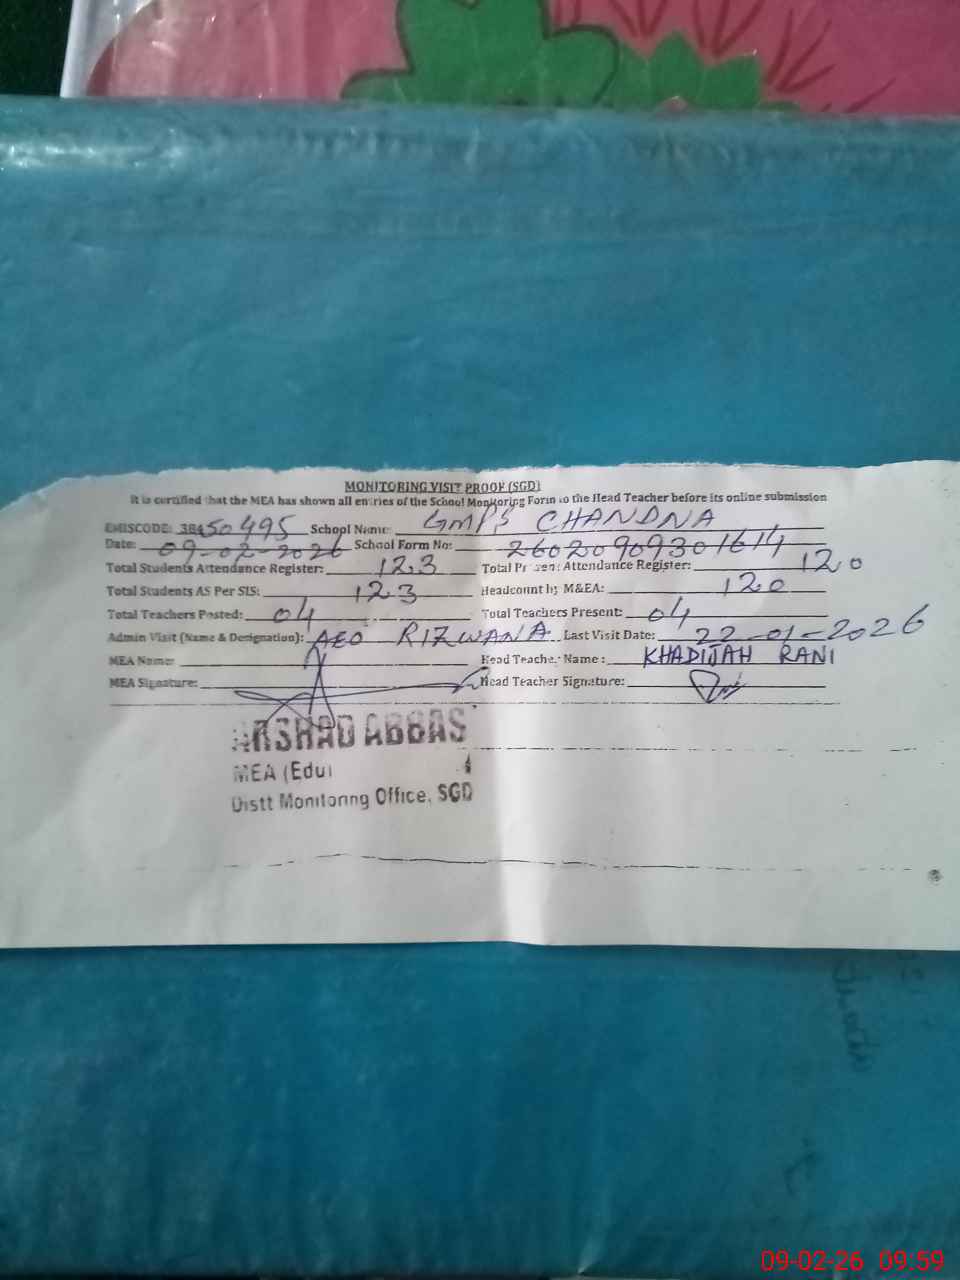 MONITORING VISIT PROOF (SGD)
It is certified that the MEA has shown all entries of the School Monitoring Form to the Head Teacher before its online submission
EMISCODE: 38450495 School Name: GMPS CHANDNA
Date: 09-02-2026 School Form No: 26020909301614
Total Students Attendance Register: 123 Total Present Attendance Register: 120
Total Students AS Per SIS: 123 Headcount by M&EA: 120
Total Teachers Posted: 04 Total Teachers Present: 04
Admin Visit (Name & Designation): AEO RIZWANA Last Visit Date: 22-01-2026
MEA Name: Head Teacher Name: KHADIJAH RANI
MEA Signature: Head Teacher Signature:
ARSHAD ABBAS
MEA (Edu)
Distt Monitoring Office, SGD
09-02-26 09:59